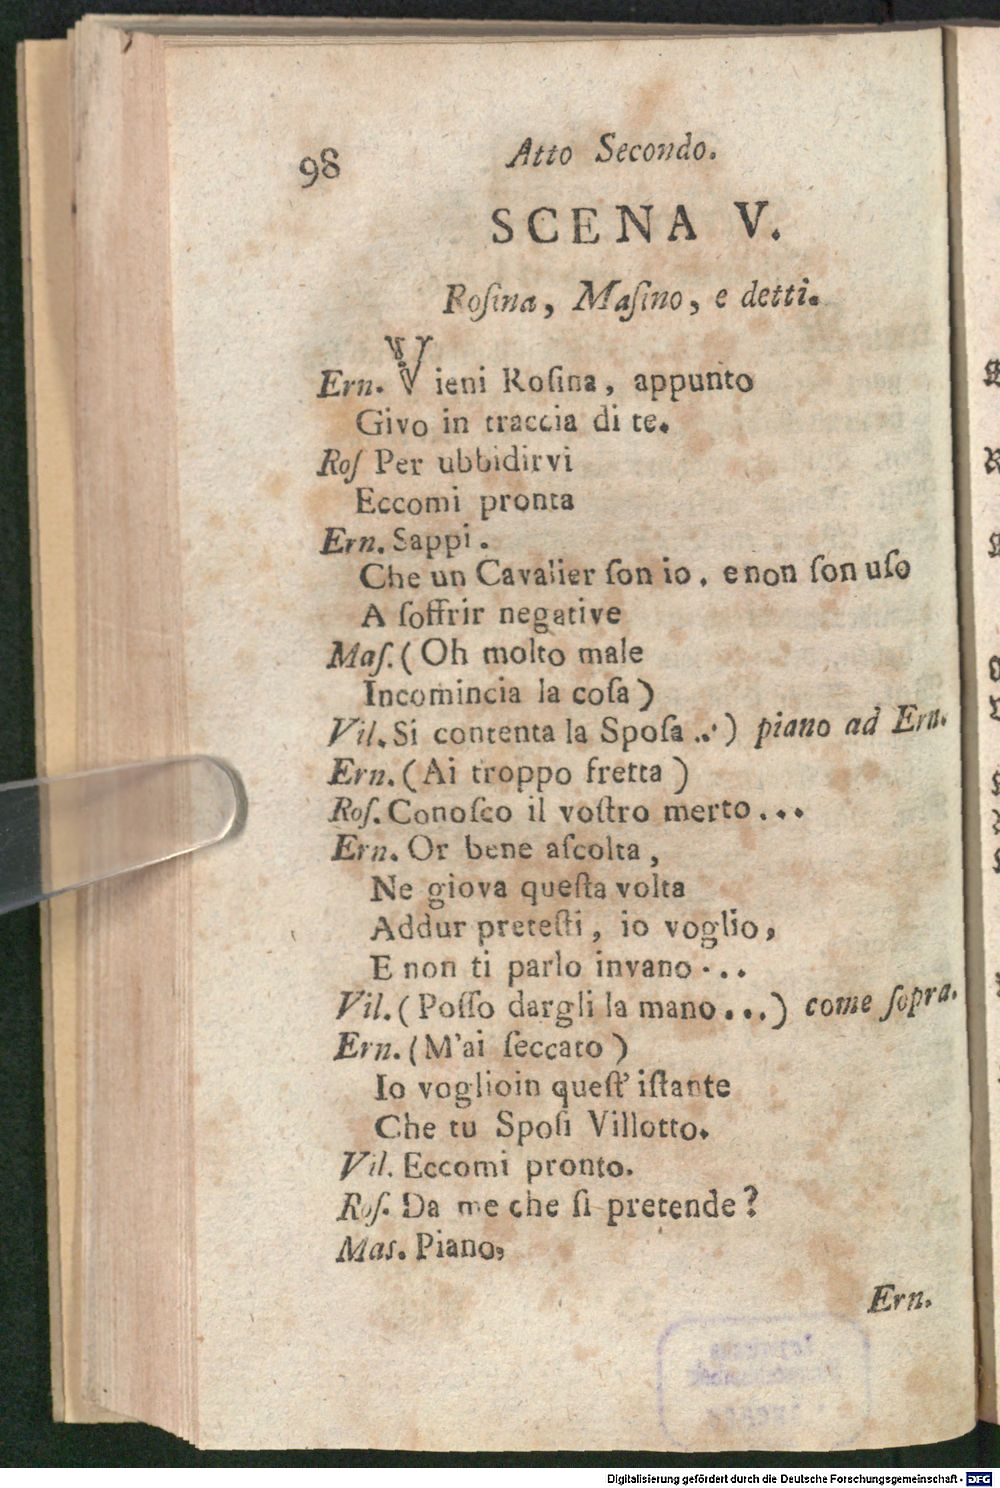 98
Atto Secondo.
SCENA V.
Roſina, Maſino, e detti.
Ern. Vieni Roſina, appunto
Givo in traccia di te.
Roſ Per ubbidirvi
Eccomi pronta
Ern. Sappi.
Che un Cavalier ſon io, e non ſon uſo
A ſoffrir negative
Maſ. (Oh molto male
Incomincia la coſa)
Vil. Si contenta la Spoſa...) piano ad Ern.
Ern. (Ai troppo fretta)
Roſ. Conoſco il voſtro merto...
Ern. Or bene aſcolta,
Ne giova queſta volta
Addur preteſti, io voglio,
E non ti parlo invano...
Vil. (Poſſo dargli la mano...) come ſopra.
Ern. (M'ai ſeccato)
Io voglioin queſt' iſtante
Che tu Spoſi Villotto.
Vil. Eccomi pronto.
Roſ. Da me che ſi pretende?
Mas. Piano,
Ern.
Digitalisierung gefördert durch die Deutsche Forschungsgemeinschaft - DFG